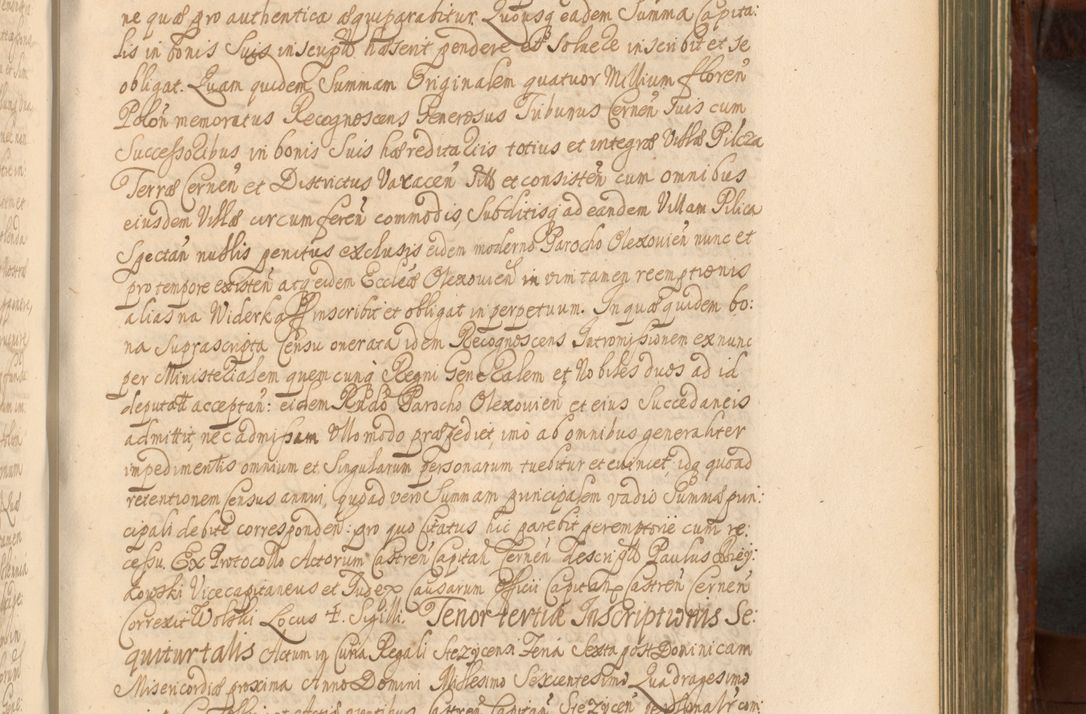 ne quæ pro authentica æquiparabitur. Quousq eadem Summa Capita:
lis in bonis Suis inscript haberit pendere et Solvere inscribit et se
obligat. Quam quidem Summam Originalem quatuor Millium floren
Polon memoratus Recognoscens Generosus Tribunus Cernen Suis cum
Successoribus in bonis Suis hæreditariis totius et integræ Villæ Pilcza
Terræ Cernen et Districtus Varacen Sitt et consisten cum omnibus
eiusdem Villæ circumferen commodis, Subditisq ad eandem Villam Pilica
Spectan nullis penitus exclusis eidem moderno Parocho Olexovien nunc et
pro tempore existen atq eidem Ecclæ Olexovien in vim tamen reemptionis
alias na Widerkaff inscribit et obligat in perpetuum. In quæ quidem bo:
na Suprascripta Censu onerata idem Recognoscens Intromissionem ex nunc
per Ministerialem quemcunq Regni Generalem et Nobiles duos ad id
deputatt acceptan: eidem Rndo Parocho Olexovien et eius Succedaneis
admittit, nec admissam Ullo modo præpediet, imo ab omnibus generaliter
impedimentis omnium et Singularum personarum tuebitur et evincet, idq quoad
retentionem Census annui, quoad vero Summam principalem vadio Summæ prin:
cipali debite corresponden: pro quo Citatus hic parebit peremptorie cum re:
cessu. Ex Protocollo Actorum Castren Capitan Cernen descriptt Paulus
kowski Vicecapitaneus et Judex Causarum Officii Capitan Castren Cernen
Correxit Wolski Locus Sigilli. Tenor tertiæ Inscriptionis Se:
quitur talis Actum in Curia Regali Stezycensi Feria Sexta post Dominicam
Misericordiæ proxima Anno Domini Millesimo Sexcentesimo Quadragesimo